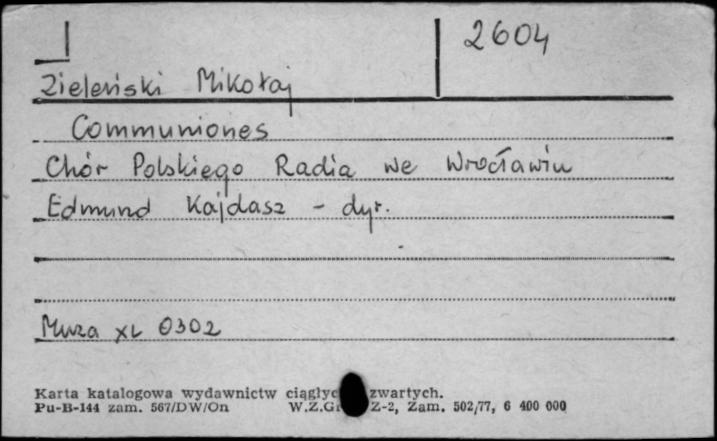 2604
Zieleński Mikołaj
Communiones
Chór Polskiego Radia we Wrocławiu
Edmund Kajdasz - dyr.
Muza XL 0302
Karta katalogowa wydawnictw ciągłyc zwartych.
Pu-B-144 zam. 567/DW/On W.Z.Gr Z-2, Zam. 502/77, 6 400 000